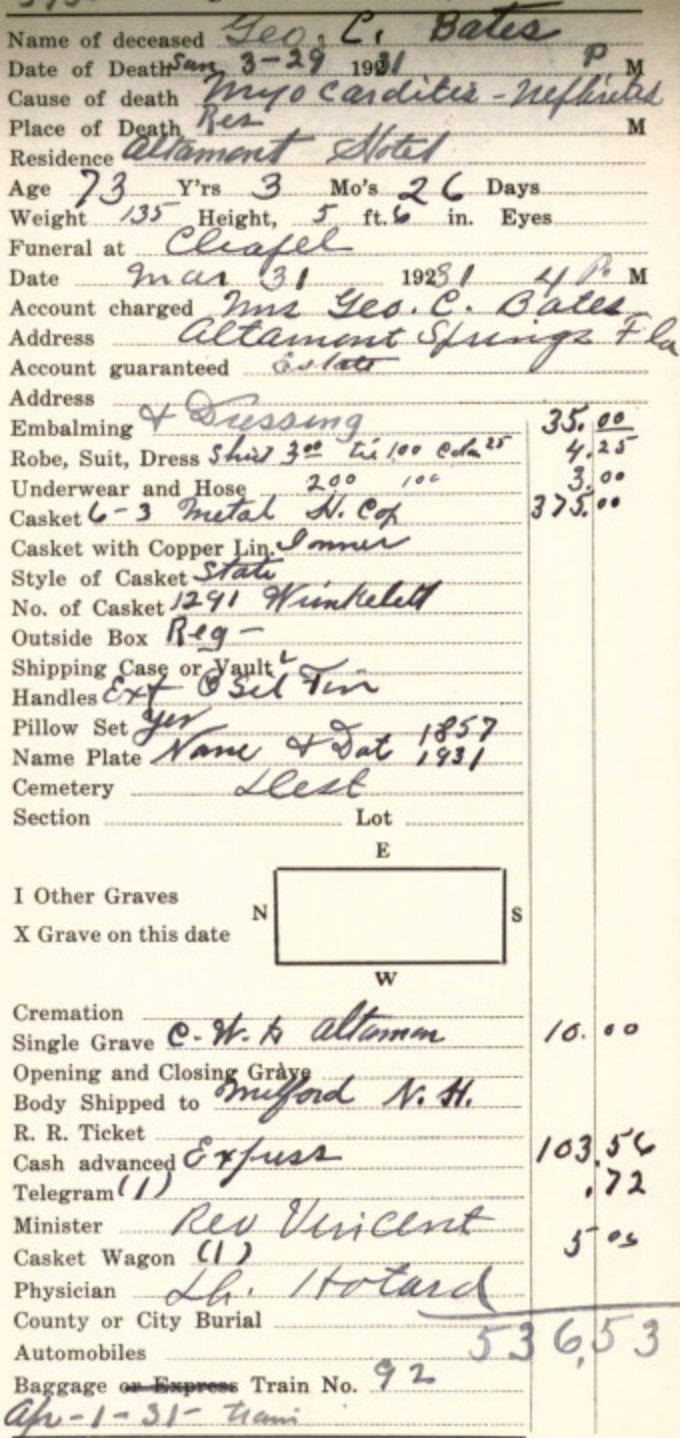 Name of deceased Geo. C. Bates
Date of Death Sun 3-29 1931 P M
Cause of death Myocarditis - Nephritis
Place of Death Res M
Residence Altamont Hotel
Age 73 Y'rs 3 Mo's 26 Days
Weight 135 Height, 5 ft. 6 in. Eyes
Funeral at Chapel
Date Mar 31 19231 4 P. M
Account charged Mrs Geo. C. Bates
Address Altamont Springs Fla
Account guaranteed Estate
Address
Embalming & Dressing 35.00
Robe, Suit, Dress Shirt 3.00 tie 1.00 Colar 25 4.25
Underwear and Hose 200 100 3.00
Casket 6-3 Metal H. Cop 375.00
Casket with Copper Lin. Inner
Style of Casket State
No. of Casket 1291
Outside Box Reg -
Shipping Case or Vault
Handles Ext Sil Fin
Pillow Set yes
Name Plate Name & Dat 1857 1931
Cemetery
Section Lot
E
I Other Graves
N S
X Grave on this date
W
Cremation
Single Grave C. W. to Altamon 10.00
Opening and Closing Grave
Body Shipped to Milford N. H.
R. R. Ticket
Cash advanced Express 103.56
Telegram (1) .72
Minister Rev Vincent
Casket Wagon (1) 5 00
Physician Dr. Hotard
County or City Burial
536.53
Automobiles
Baggage or Express Train No. 92
Apr-1-31- train